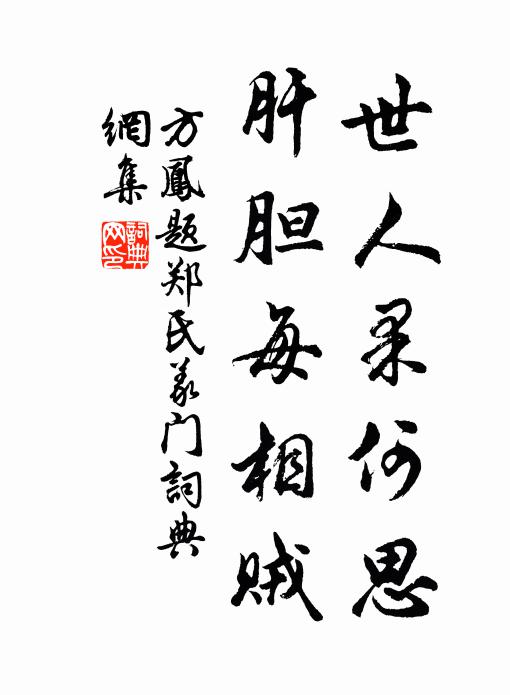 世人果何思
肝胆每相贼
方鳳题郑氏义门詞典
網集
詞典网印